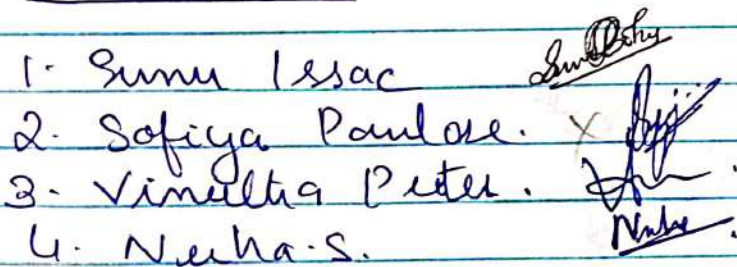 1. Sunu Issac
2. Sofiya Paulose. X
3. Vineetha Peter.
4. Neeha.S.